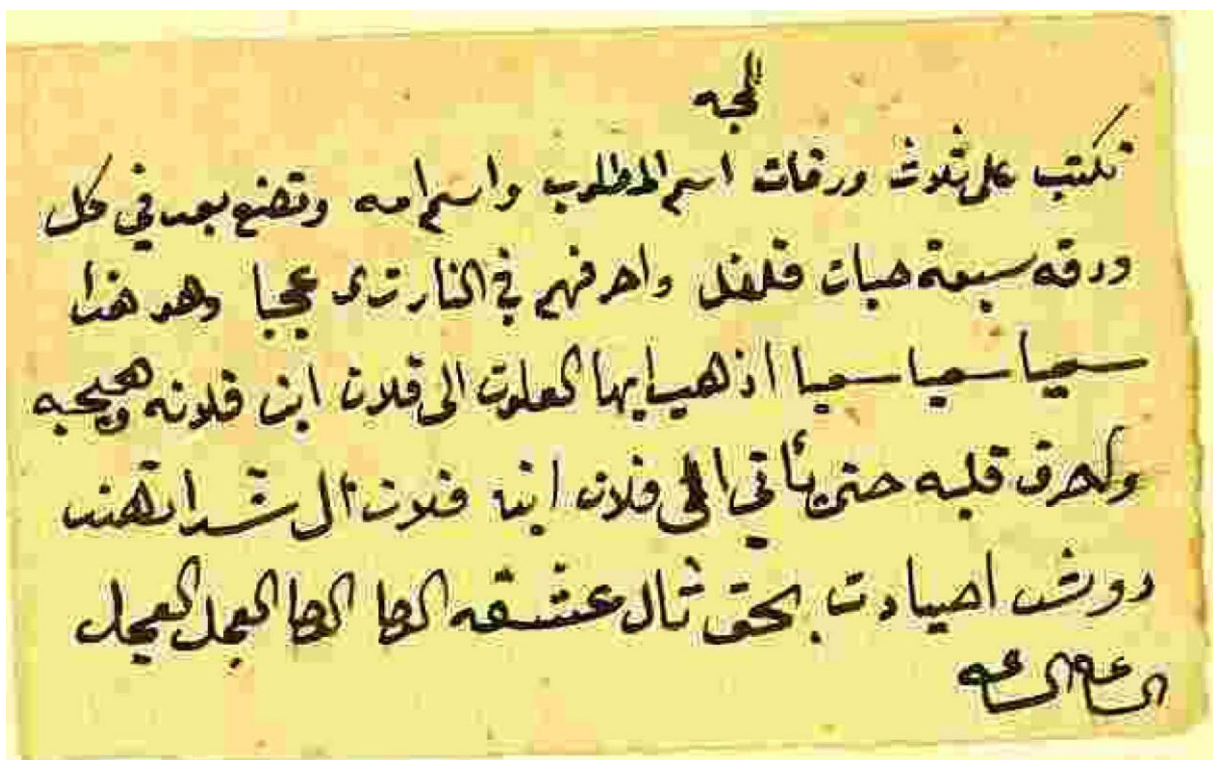 للمحبه
تكتب على ثلاث ورقات اسم المطلوب واسم امه وتضع بعده في كل
ورقه سبعة حبات فلفل واحرقهم في النار ترى عجبا وهو هذا
سميا سميا سميا اذهب ايها العلوت الى فلان ابن فلانه وهيجه
واحرق قلبه حتى ياتي الى فلان ابنة فلان ال شد
احيا بحق ال عشقه الوحا الوحا العجل العجل
الساعه الساعه